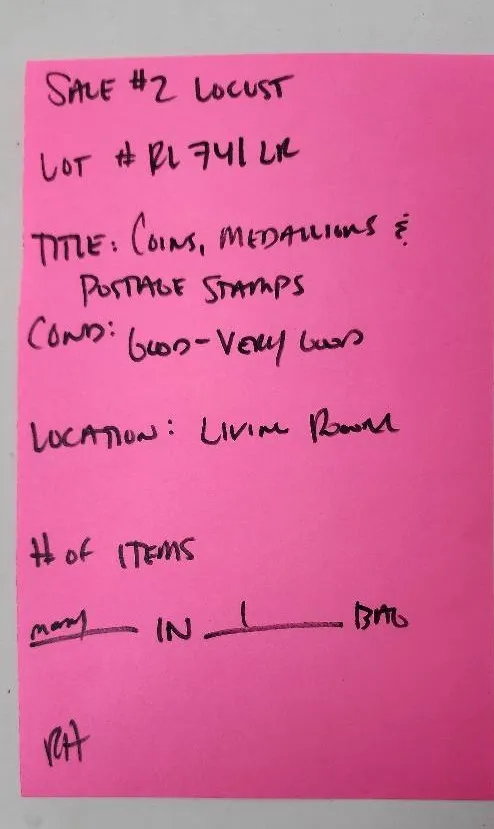 SALE #2 LOCUST
LOT # RL 741 LR
TITLE: COINS, MEDALLIONS &
POSTAGE STAMPS
COND: GOOD-VERY GOOD
LOCATION: LIVING ROOM
# OF ITEMS
many IN 1 BAG
RH